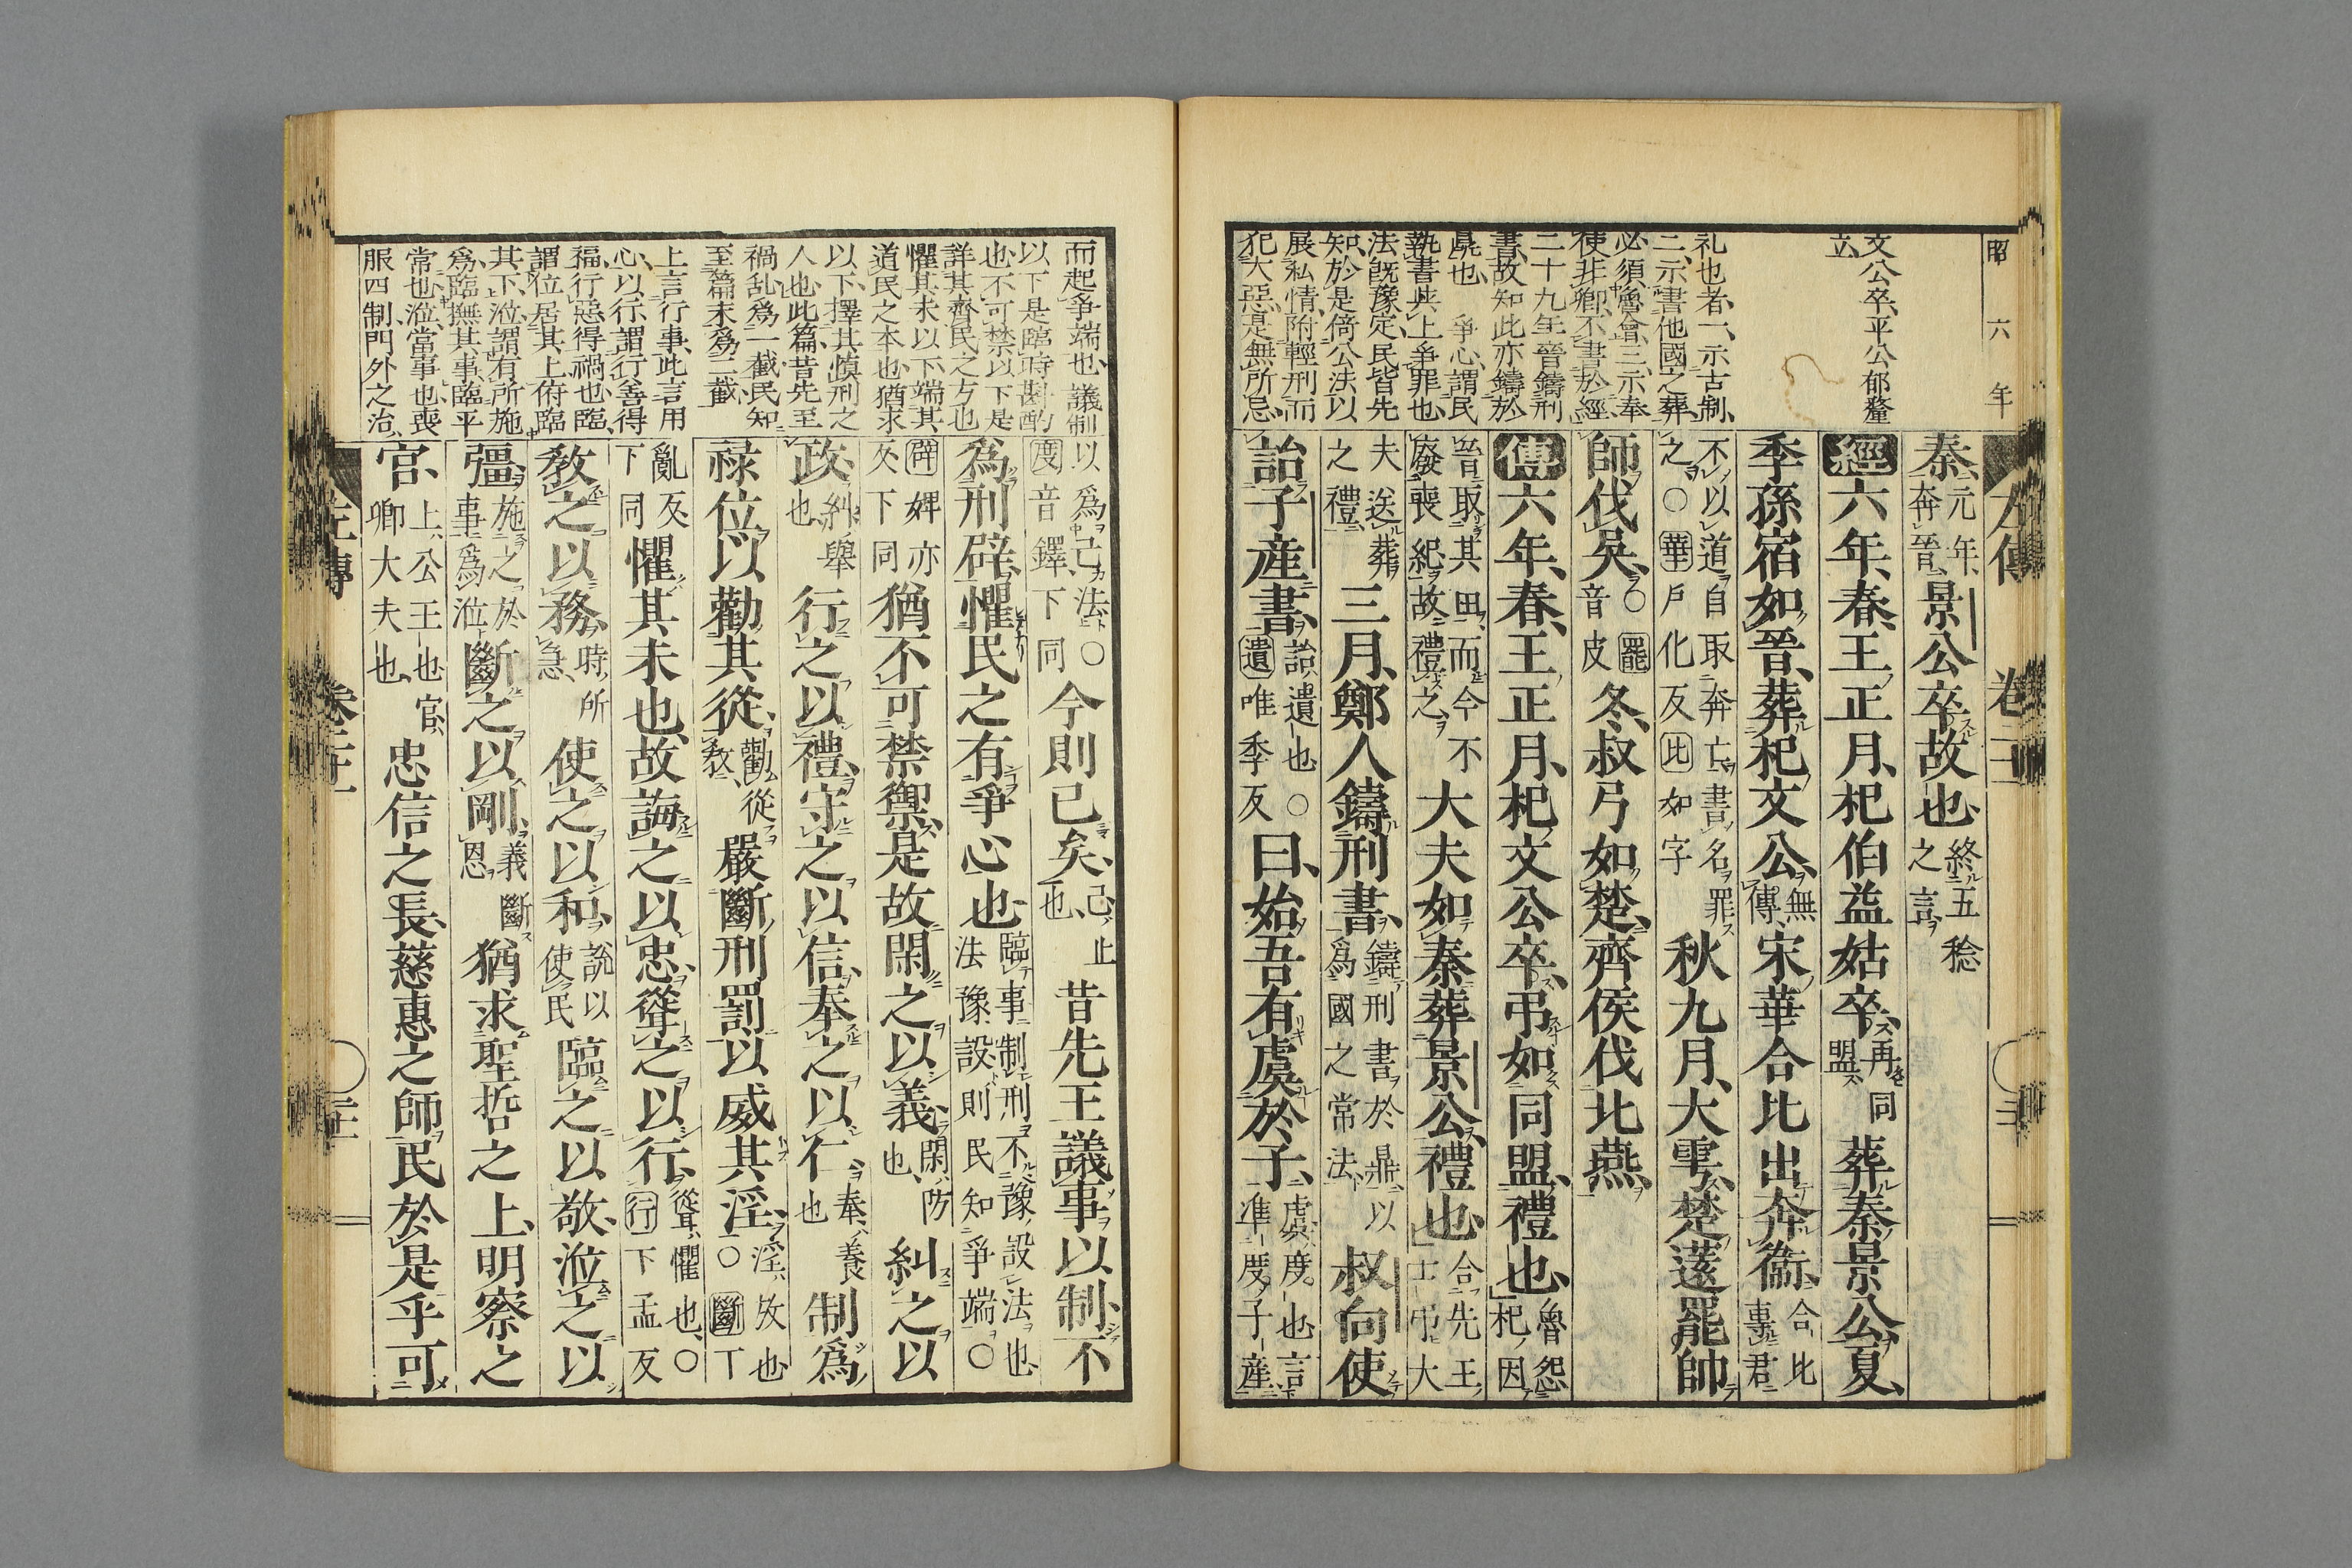 昭六年
左傳
文公卒平公郁釐
立
礼也者一示古制
二示書他國之葬
必須魯會三示奉
使非卿不書於經
二十九年晉鑄刑
書故知此亦鑄於
鼎也 爭心謂民
執書其上爭罪也
法既豫定民皆先
知於是倚公法以
展私情附輕刑而
犯大惡是無所忌
秦元年奔晉景公卒故也終五稔之言
經六年春王正月杞伯益姑卒再同盟葬秦景公夏
季孫宿如晉葬杞文公無傳宋華合比出奔衞合比事君
不以道自取奔亡書名罪之○華戶化反比如字秋九月大雩楚薳罷帥
師伐吳○罷音皮冬叔弓如楚齊侯伐北燕
傳六年春王正月杞文公卒弔如同盟禮也魯怨杞因
晉取其田而今不廢喪紀故禮之大夫如秦葬景公禮也合先王士弔大
夫送葬之禮三月鄭人鑄刑書鑄刑書於鼎以爲國之常法叔向使
詒子產書詒遺也○遺唯季反曰始吾有虞於子虞度也言準度子產
而起爭端也議制
以下是臨時斟酌
也不可禁以下是
詳其齊民之方也
懼其未以下端其
道民之本也猶求
以下擇其慎刑之
人也此篇昔先至
禍乱爲一截民知
至篇末爲二截
上言行事此言用
心以行謂行善得
福行惡得禍也臨
謂位居其上俯臨
其下涖謂有所施
爲臨撫其事臨平
常也涖當事也喪
服四制門外之治
以爲己法○度音鐸下同今則已矣已止也昔先王議事以制不
爲刑辟懼民之有爭心也臨事制刑不豫設法也法豫設則民知爭端○
辟婢亦反下同猶不可禁禦是故閑之以義閑防也糾之以
政糾舉也行之以禮守之以信奉之以仁奉養也制爲
祿位以勸其從勸從教嚴斷刑罰以威其淫淫放也○斷丁
亂反下同懼其未也故誨之以忠聳之以行聳懼也○行下孟反
教之以務時所急使之以和說以使民臨之以敬涖之以
彊施之於事爲涖斷之以剛義斷恩猶求聖哲之上明察之
官上公王也官卿大夫也忠信之長慈惠之師民於是乎可